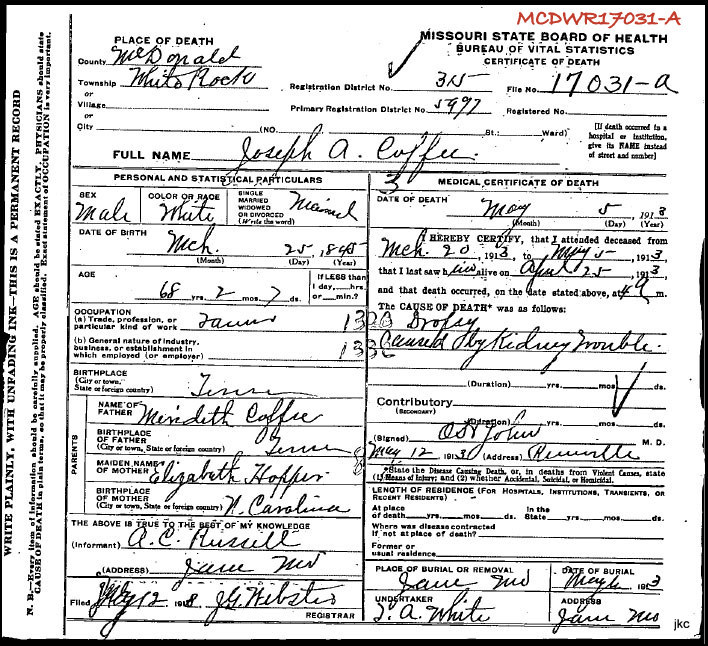 MCDWR17031-A
WRITE PLAINLY, WITH UNFADING INK—THIS IS A PERMANENT RECORD
N. B.—Every item of information should be carefully supplied. AGE should be stated EXACTLY. PHYSICIANS should state
CAUSE OF DEATH in plain terms, so that it may be properly classified. Exact statement of OCCUPATION is very important.
PLACE OF DEATH
County McDonald
Township White Rock
or
Village
or
City (NO. St.; Ward)
MISSOURI STATE BOARD OF HEALTH
BUREAU OF VITAL STATISTICS
CERTIFICATE OF DEATH
Registration District No. 325 File No. 17031-a
Primary Registration District No. 5997 Registered No.
[If death occurred in a
hospital or institution,
give its NAME instead
of street and number]
FULL NAME Joseph A. Coffee.
PERSONAL AND STATISTICAL PARTICULARS
SEX Male
COLOR OR RACE White
SINGLE
MARRIED
WIDOWED
OR DIVORCED
(Write the word)
Married
DATE OF BIRTH
Mch. 25, 1845
(Month) (Day) (Year)
AGE
68 yrs. 2 mos. 7 ds.
If LESS than
1 day, hrs.
or min.?
OCCUPATION
(a) Trade, profession, or
particular kind of work Farmer
(b) General nature of industry,
business, or establishment in
which employed (or employer)
BIRTHPLACE
(City or town,
State or foreign country) Tenn
PARENTS
NAME OF
FATHER Meridith Coffee
BIRTHPLACE
OF FATHER
(City or town, State or foreign country) Tenn
MAIDEN NAME
OF MOTHER Elizabeth Hopper
BIRTHPLACE
OF MOTHER
(City or town, State or foreign country) N. Carolina
THE ABOVE IS TRUE TO THE BEST OF MY KNOWLEDGE
(Informant) A. C. Russell
(ADDRESS) Jane Mo
Filed July 12 1918 J. G. Webster
REGISTRAR
3 MEDICAL CERTIFICATE OF DEATH
DATE OF DEATH
May 5, 1913
(Month) (Day) (Year)
I HEREBY CERTIFY, that I attended deceased from
Mch. 20, 1913, to May 5, 1913
that I last saw him alive on April 25, 1913
and that death occurred, on the date stated above, at 4 a m.
The CAUSE OF DEATH* was as follows:
Dropsy
Caused by Kidney Trouble.
(Duration) yrs. mos. ds.
Contributory
(SECONDARY)
(Duration) yrs. mos. ds.
(Signed) M. D.
May 12, 1913 (Address)
*State the Disease Causing Death, or, in deaths from Violent Causes, state
(1) Means of Injury; and (2) whether Accidental, Suicidal, or Homicidal.
LENGTH OF RESIDENCE (FOR HOSPITALS, INSTITUTIONS, TRANSIENTS, OR
RECENT RESIDENTS)
At place
of death yrs. mos. ds.
In the
State yrs. mos. ds.
Where was disease contracted
if not at place of death?
Former or
usual residence
PLACE OF BURIAL OR REMOVAL
Jane Mo
DATE OF BURIAL
May 6 1913
UNDERTAKER
T. A. White
ADDRESS
Jane Mo
jkc